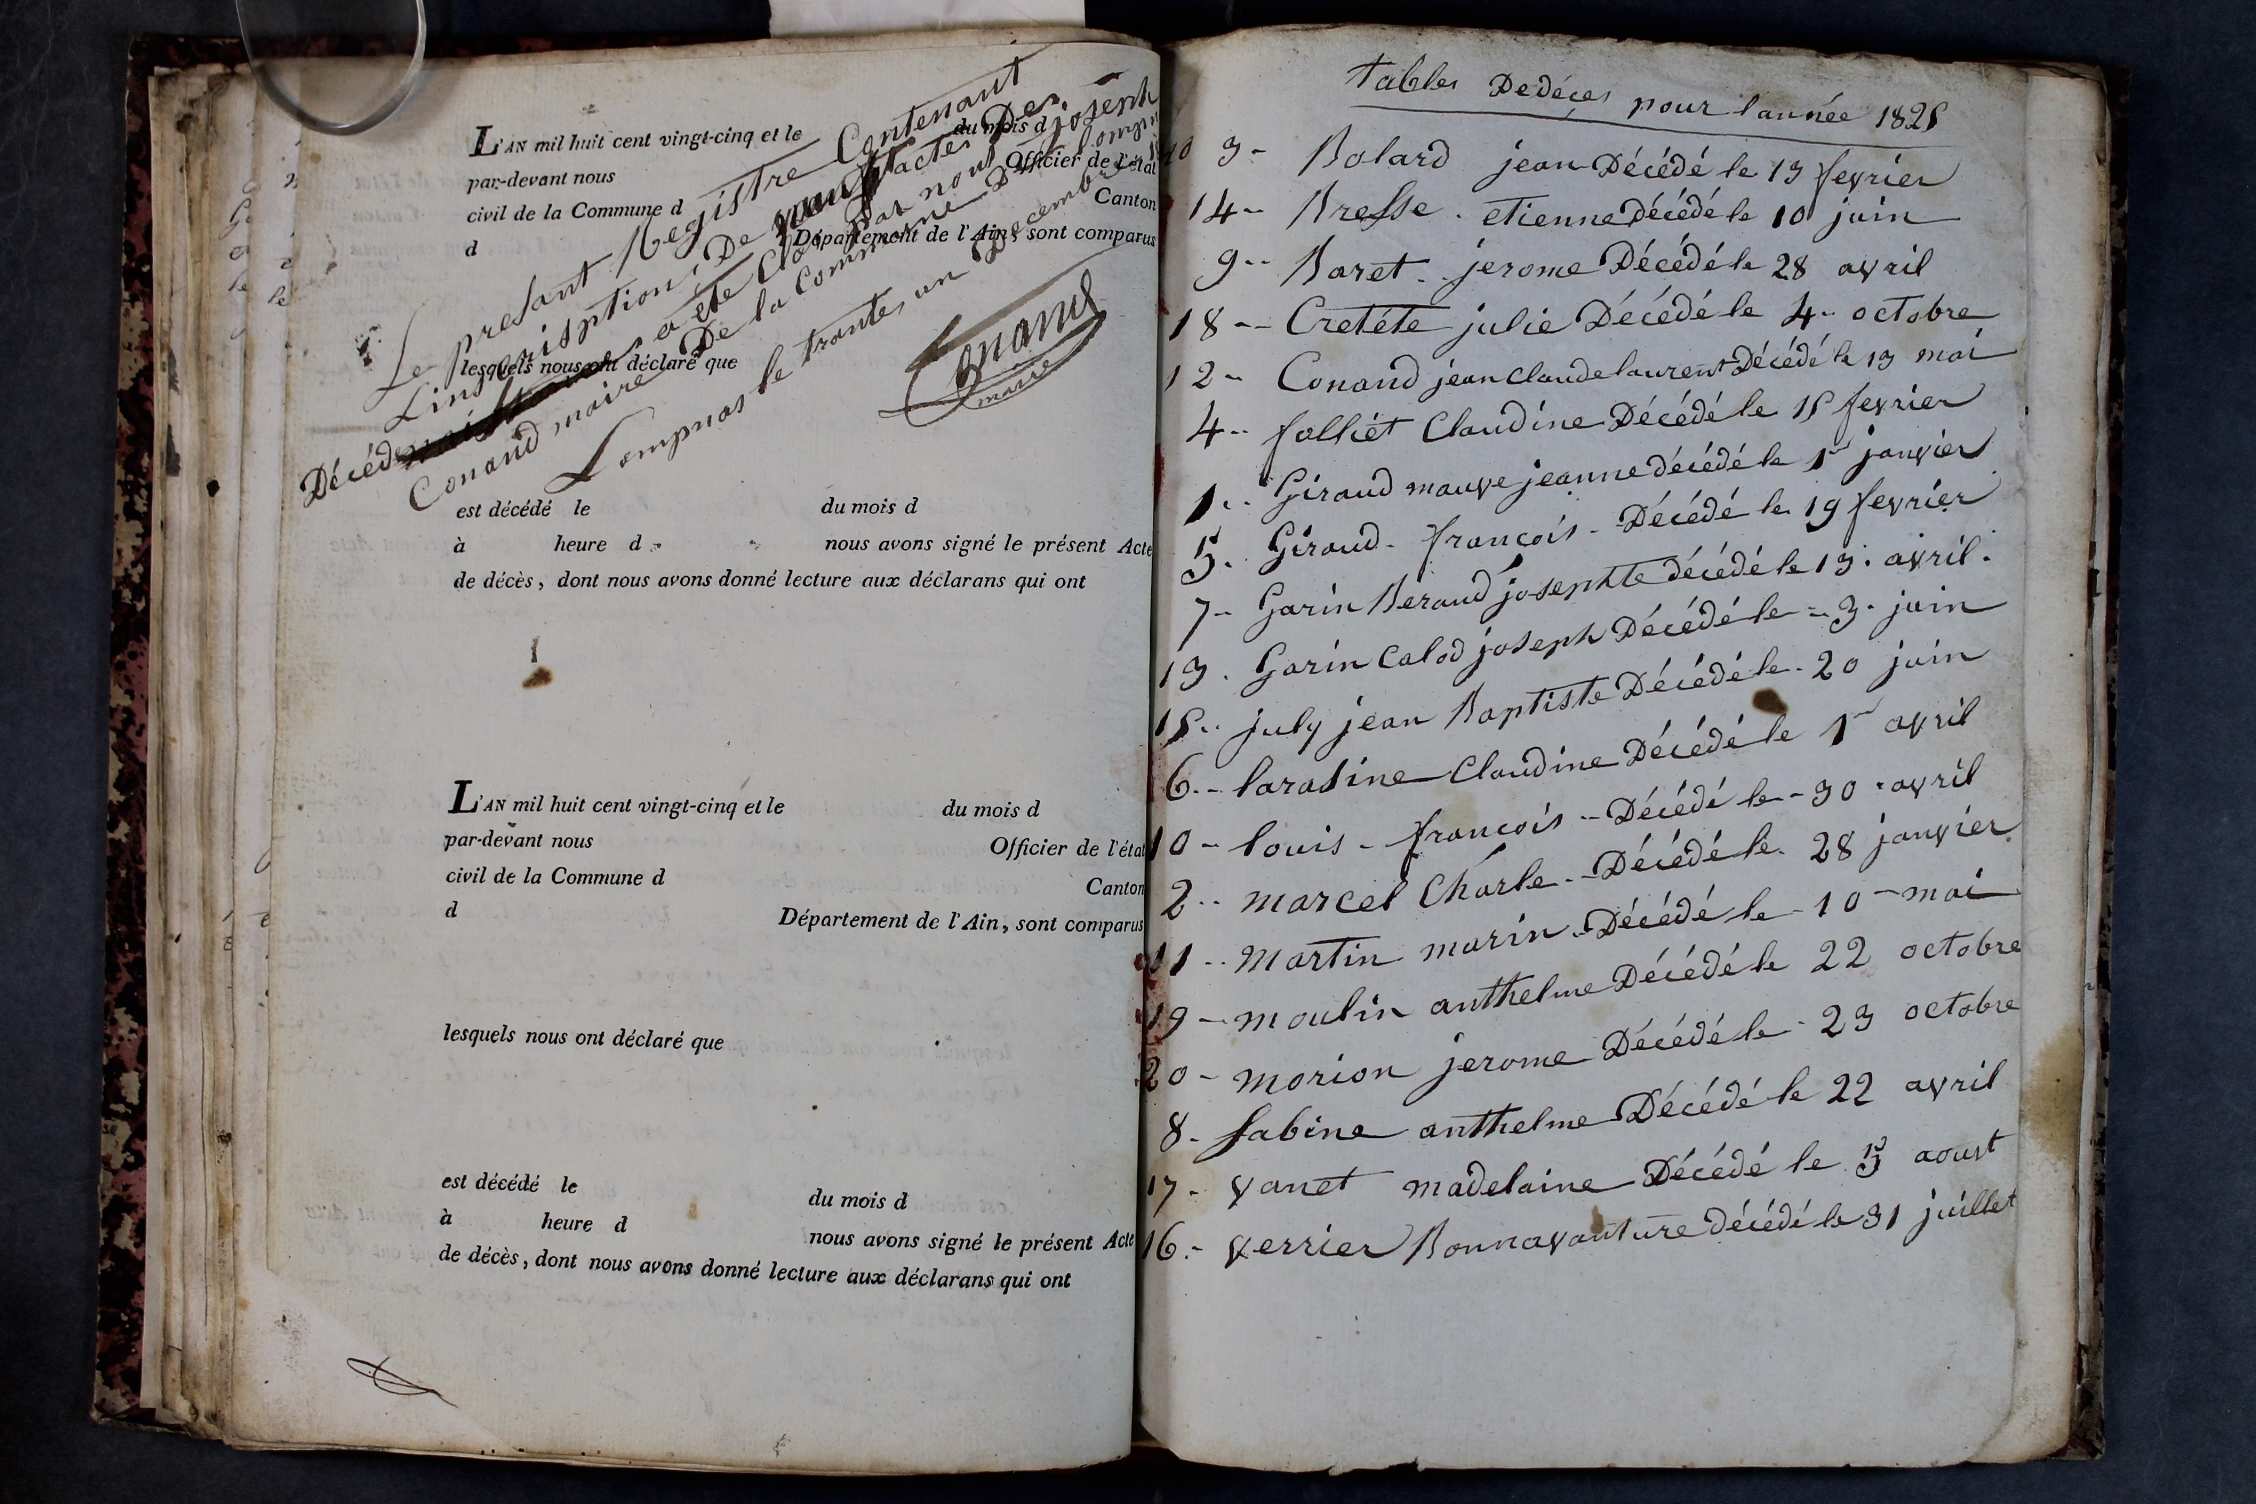 L'AN mil huit cent vingt-cinq et le du mois d
par-devant nous Officier de l'état
civil de la Commune d Canton
d Département de l'Ain, sont comparus
Le presant Registre Contenant
Linscrisption De actes De
Décéde a été Clos par nous joseph
Conand maire De la Commune De Lompnas
Lompnas le trante un Decembre
Conand
maire
lesquels nous ont déclaré que
est décédé le du mois d
à heure d nous avons signé le présent Acte
de décès, dont nous avons donné lecture aux déclarans qui ont
L'AN mil huit cent vingt-cinq et le du mois d
par-devant nous Officier de l'état
civil de la Commune d Canton
d Département de l'Ain, sont comparus
lesquels nous ont déclaré que
est décédé le du mois d
à heure d nous avons signé le présent Acte
de décès, dont nous avons donné lecture aux déclarans qui ont
tables Dedéces pour lannée 1825
3 - Bolard jean Décédé le 13 fevrier
14 - Bresse . etienne décédé le 10 juin
9 - Baret - jerome Décédé le 28 avril
18 - Cretéte julie Décédé le 4 - octobre
12 - Conand jean claude laurent Décédé le 13 mai
4 - folliet Claudine Décédé le 15 fevrier
1 - Giraud mauve jeanne décédé le 1er janvier
5 - Giraud - francois - Décédé le 19 fevrier
7 - Garin Beraud josephte décédé le 13 . avril .
13 . Garin Calod joseph Décédé le - 3 . juin
15 - july jean Baptiste Décédé le - 20 juin
6 - larasine Claudine Décédé le 1er avril
10 - louis - francois - Décédé le - 30 - avril
2 - marcel Charle - Décédé le 28 janvier
11 - martin marin - Décédé le - 10 - mai
19 - moulin anthelme Décédé le 22 octobre
20 - morion jerome Décédé le 23 octobre
8 - Sabine anthelme Décédé le 22 avril
17 - vanet madelaine Décédé le 5 aoust
16 - verrier Bonnavanture décédé le 31 juillet